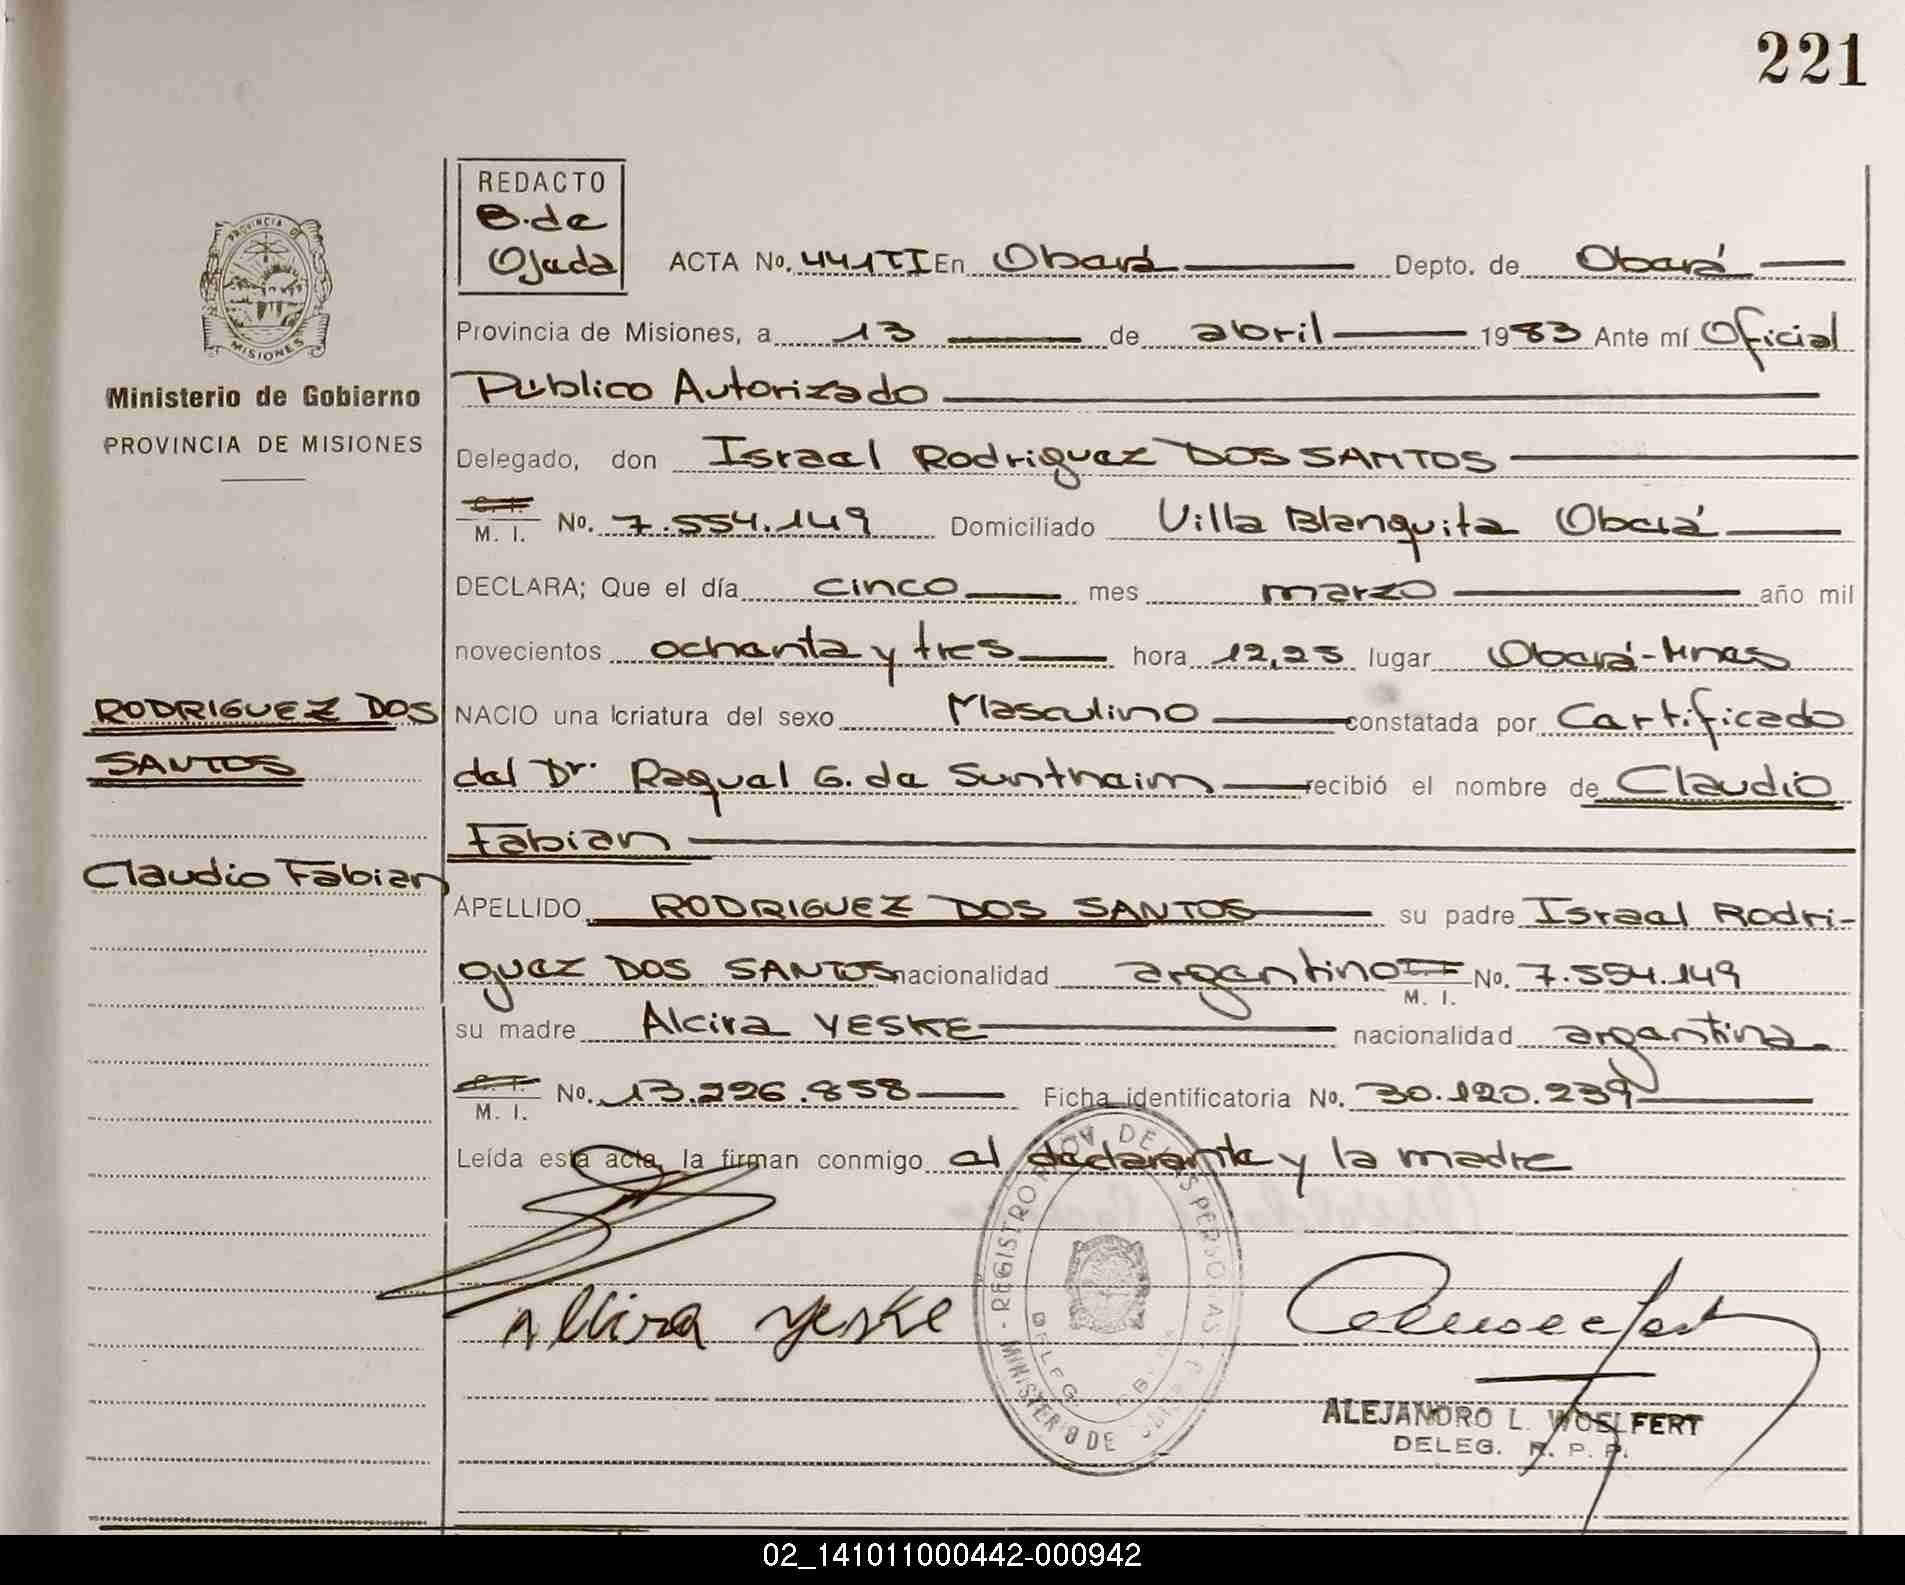 221
REDACTO
B. de
Ojeda
PROVINCIA DE
MISIONES
Ministerio de Gobierno
PROVINCIA DE MISIONES
RODRIGUEZ DOS
SANTOS
Claudio Fabian
ACTA No. 441TI En Oberá Depto. de Oberá
Provincia de Misiones, a 13 de abril 1983 Ante mí Oficial
Público Autorizado
Delegado, don Israel Rodriguez DOS SANTOS
C. I. M. I. No. 7.554.149 Domiciliado Villa Blanquita Oberá
DECLARA; Que el día cinco mes marzo año mil
novecientos ochenta y tres hora 12,25 lugar Oberá-Mnes
NACIO una criatura del sexo Masculino constatada por Certificado
del Dr. Raquel G. de Suntheim recibió el nombre de Claudio
Fabian
APELLIDO RODRIGUEZ DOS SANTOS su padre Israel Rodri-
guez DOS SANTOS nacionalidad argentino C. I. M. I. No. 7.554.149
su madre Alcira YESKE nacionalidad argentina
C. I. M. I. No. 13.226.858 Ficha identificatoria No. 30.120.239
Leída esta acta, la firman conmigo el declarante y la madre
Alcira Yeske
REGISTRO PROV. DE LAS PERSONAS
MINISTERIO DE
DELEG.
ALEJANDRO L. WOELFERT
DELEG. R. P. P.
02_141011000442-000942